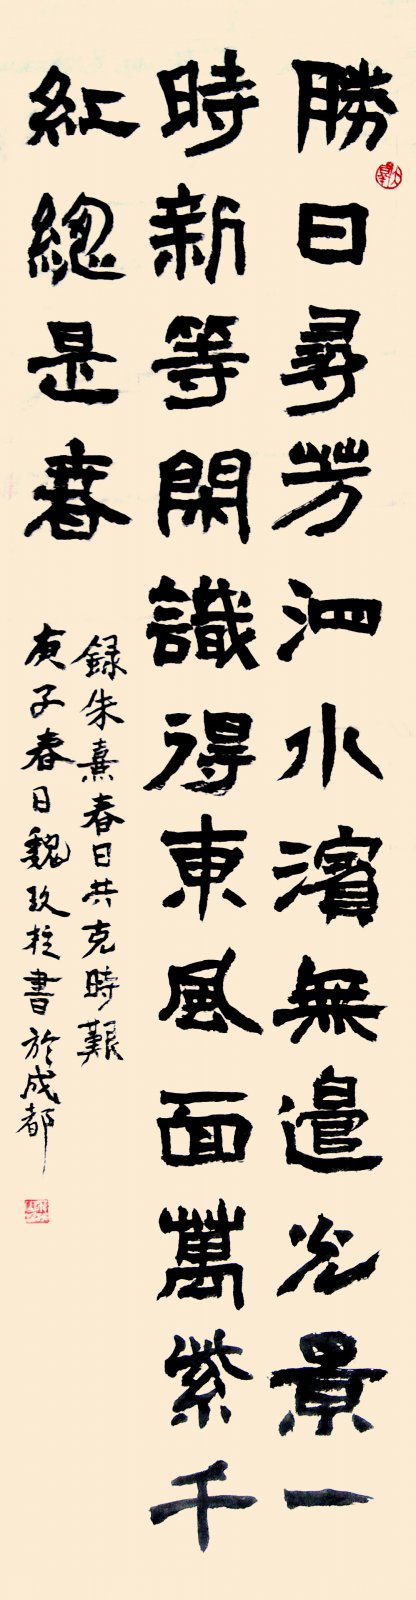 勝日尋芳泗水濱無邊光景一
時新等閑識得東風面萬紫千
紅總是春
録朱熹春日共克時艱
庚子春日魏玖柱書於成都